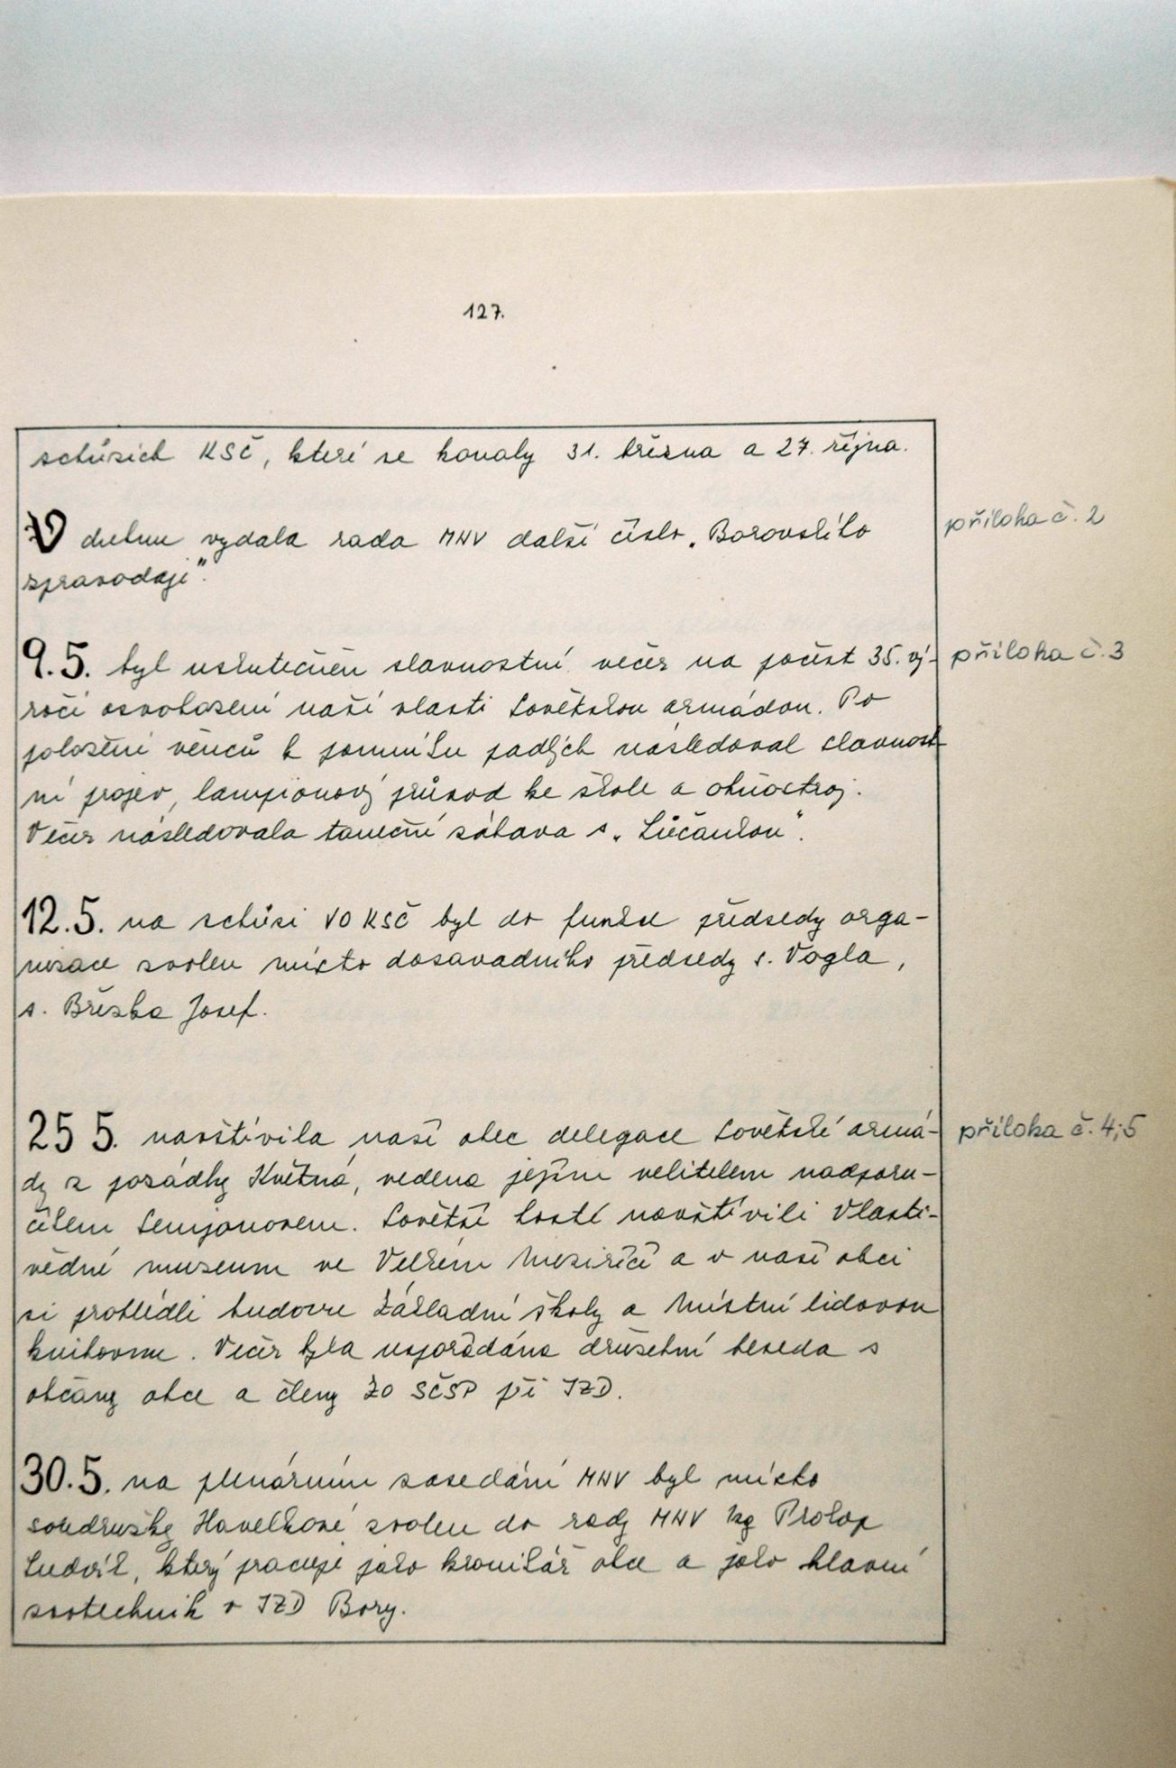 127.
schůzích KSČ, které se konaly 31. března a 27. října.
V dubnu vydala rada MNV další číslo „Borovského
příloha č. 2
zpravodaje“.
9.5. byl uskutečněn slavnostní večer na počest 35. vý-
příloha č. 3
ročí osvobození naší vlasti Sovětskou armádou. Po
položení věnců k pomníku padlých následoval slavnost
ní projev, lampionový průvod ke škole a ohňostroj.
Večer následovala taneční zábava s „Lůčankou“.
12.5. na schůzi VO KSČ byl do funkce předsedy orga-
nizace zvolen místo dosavadního předsedy s. Vogla,
s. Březka Josef.
25 5. navštívila naši obec delegace Sovětské armá-
příloha č. 4; 5
dy z posádky Květná, vedena jejím velitelem nadporu-
číkem Semjonovem. Sovětští hosté navštívili Vlasti-
vědné muzeum ve Velkém Meziříčí a v naší obci
si prohlédli budovu Základní školy a Místní lidovou
knihovnu. Večer byla uspořádána družební beseda s
občany obce a členy ZO SČSP při JZD.
30.5. na plenárním zasedání MNV byl místo
soudružky Havelkové zvolen do rady MNV Prokop
Ludvík, který pracuje jako kronikář obce a jako hlavní
zootechnik v JZD Bory.